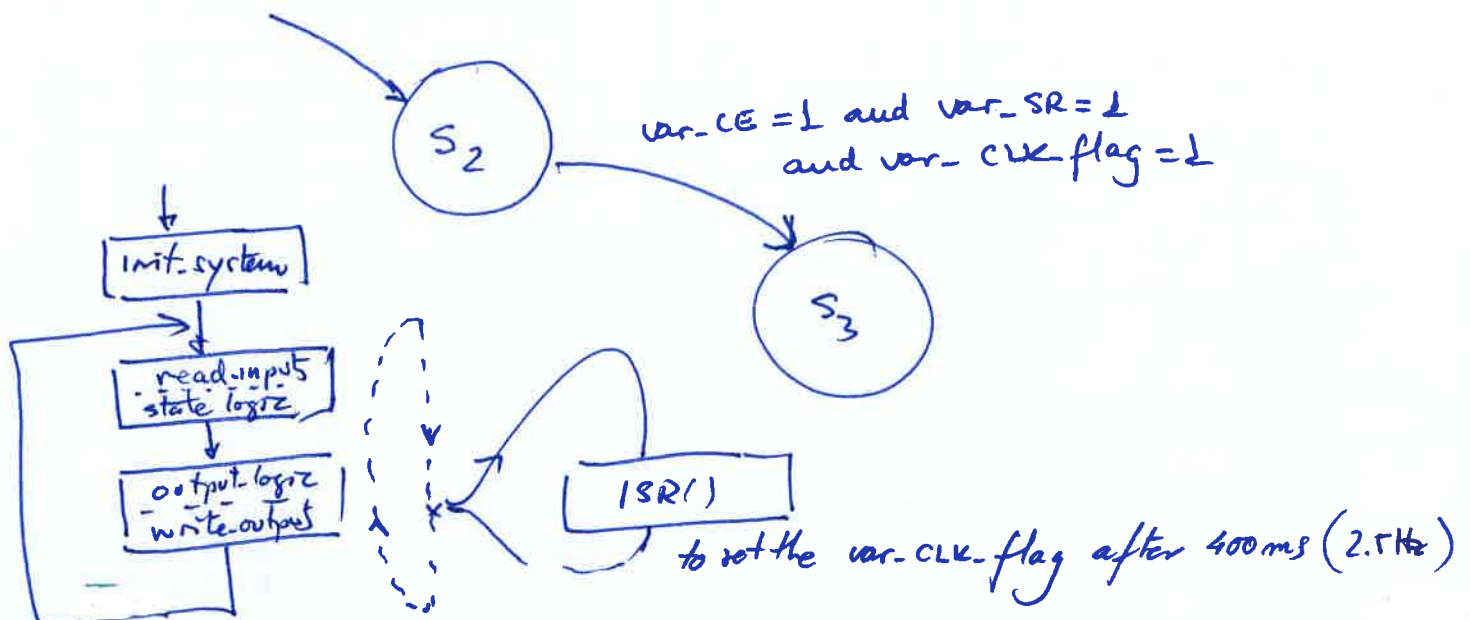 S2
var_CE = 1 and var_SR = 1
and var_CLK_flag = 1
S3
init_system
read_input
state_logic
output_logic
write_output
ISR()
to set the var_CLK_flag after 400 ms (2.5 Hz)